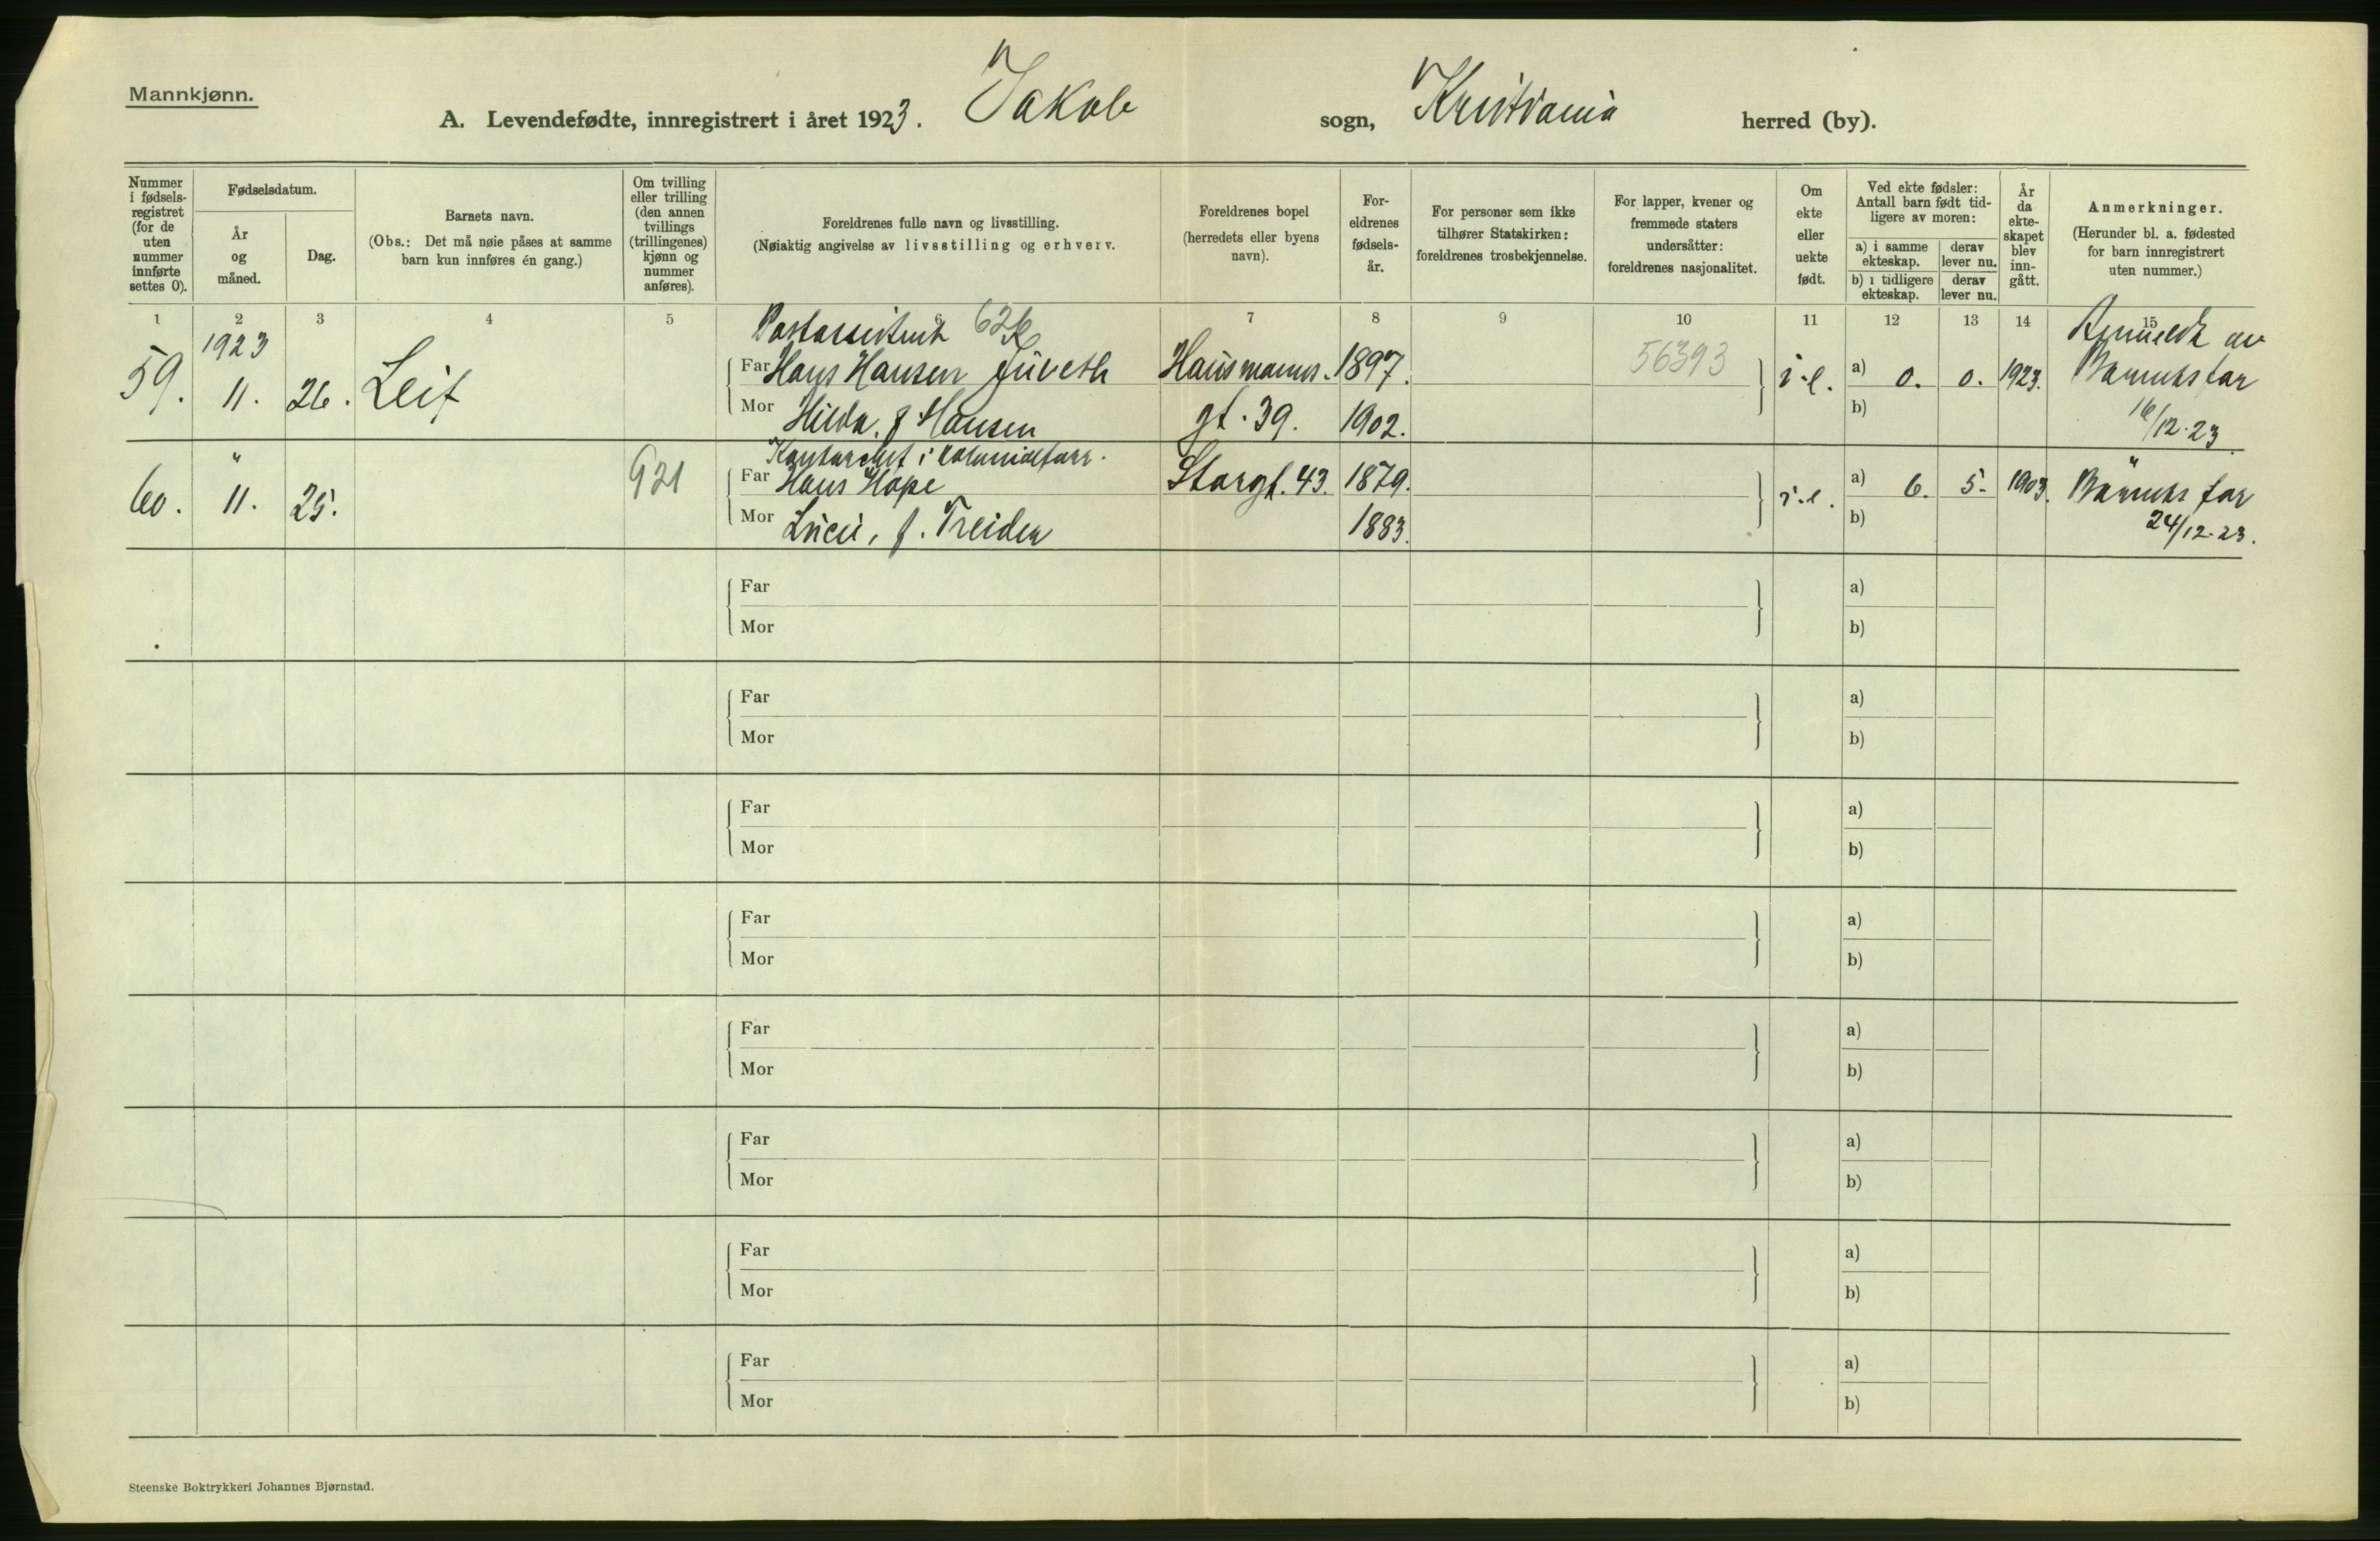 Mannkjønn.
A. Levendefødte, innregistrert i året 1923. Jakob sogn, Kristiania herred (by).
Nummer i fødselsregistret (for de uten nummer innførte settes 0).
Fødselsdatum.
År og måned.
Dag.
Barnets navn.
(Obs.: Det må nøie påses at samme barn kun innføres én gang.)
Om tvilling eller trilling (den annen tvillings (trillingenes) kjønn og nummer anføres).
Foreldrenes fulle navn og livsstilling.
(Nøiaktig angivelse av livsstilling og erhverv.
Foreldrenes bopel (herredets eller byens navn).
Foreldrenes fødselsår.
For personer som ikke tilhører Statskirken: foreldrenes trosbekjennelse.
For lapper, kvener og fremmede staters undersåtter: foreldrenes nasjonalitet.
Om ekte eller uekte født.
Ved ekte fødsler: Antall barn født tidligere av moren:
a) i samme ekteskap.
derav lever nu.
b) i tidligere ekteskap.
derav lever nu.
År da ekteskapet blev inngått.
Anmerkninger.
(Herunder bl. a. fødested for barn innregistrert uten nummer.)
1 2 3 4 5 6 7 8 9 10 11 12 13 14 15
1923 626 Anmeldt av
59. 11. 26. Leif Far Hans Hansen Hausmanns- 1897. 56393 a) 0. 0. 1923. Barnets far
Mor Hilda. f Hansen gt. 39. 1902. b) 16/12-23.
" Kontorchef i "
60. 11. 25. 921 Far Hans Hope Storgt. 43. 1879. a) 6. 5. 1903. Barnets far
Mor f. Treider 1883. b) 24/12-23.
Far a)
Mor b)
Far a)
Mor b)
Far a)
Mor b)
Far a)
Mor b)
Far a)
Mor b)
Far a)
Mor b)
Far a)
Mor b)
Far a)
Mor b)
Steenske Boktrykkeri Johannes Bjørnstad.